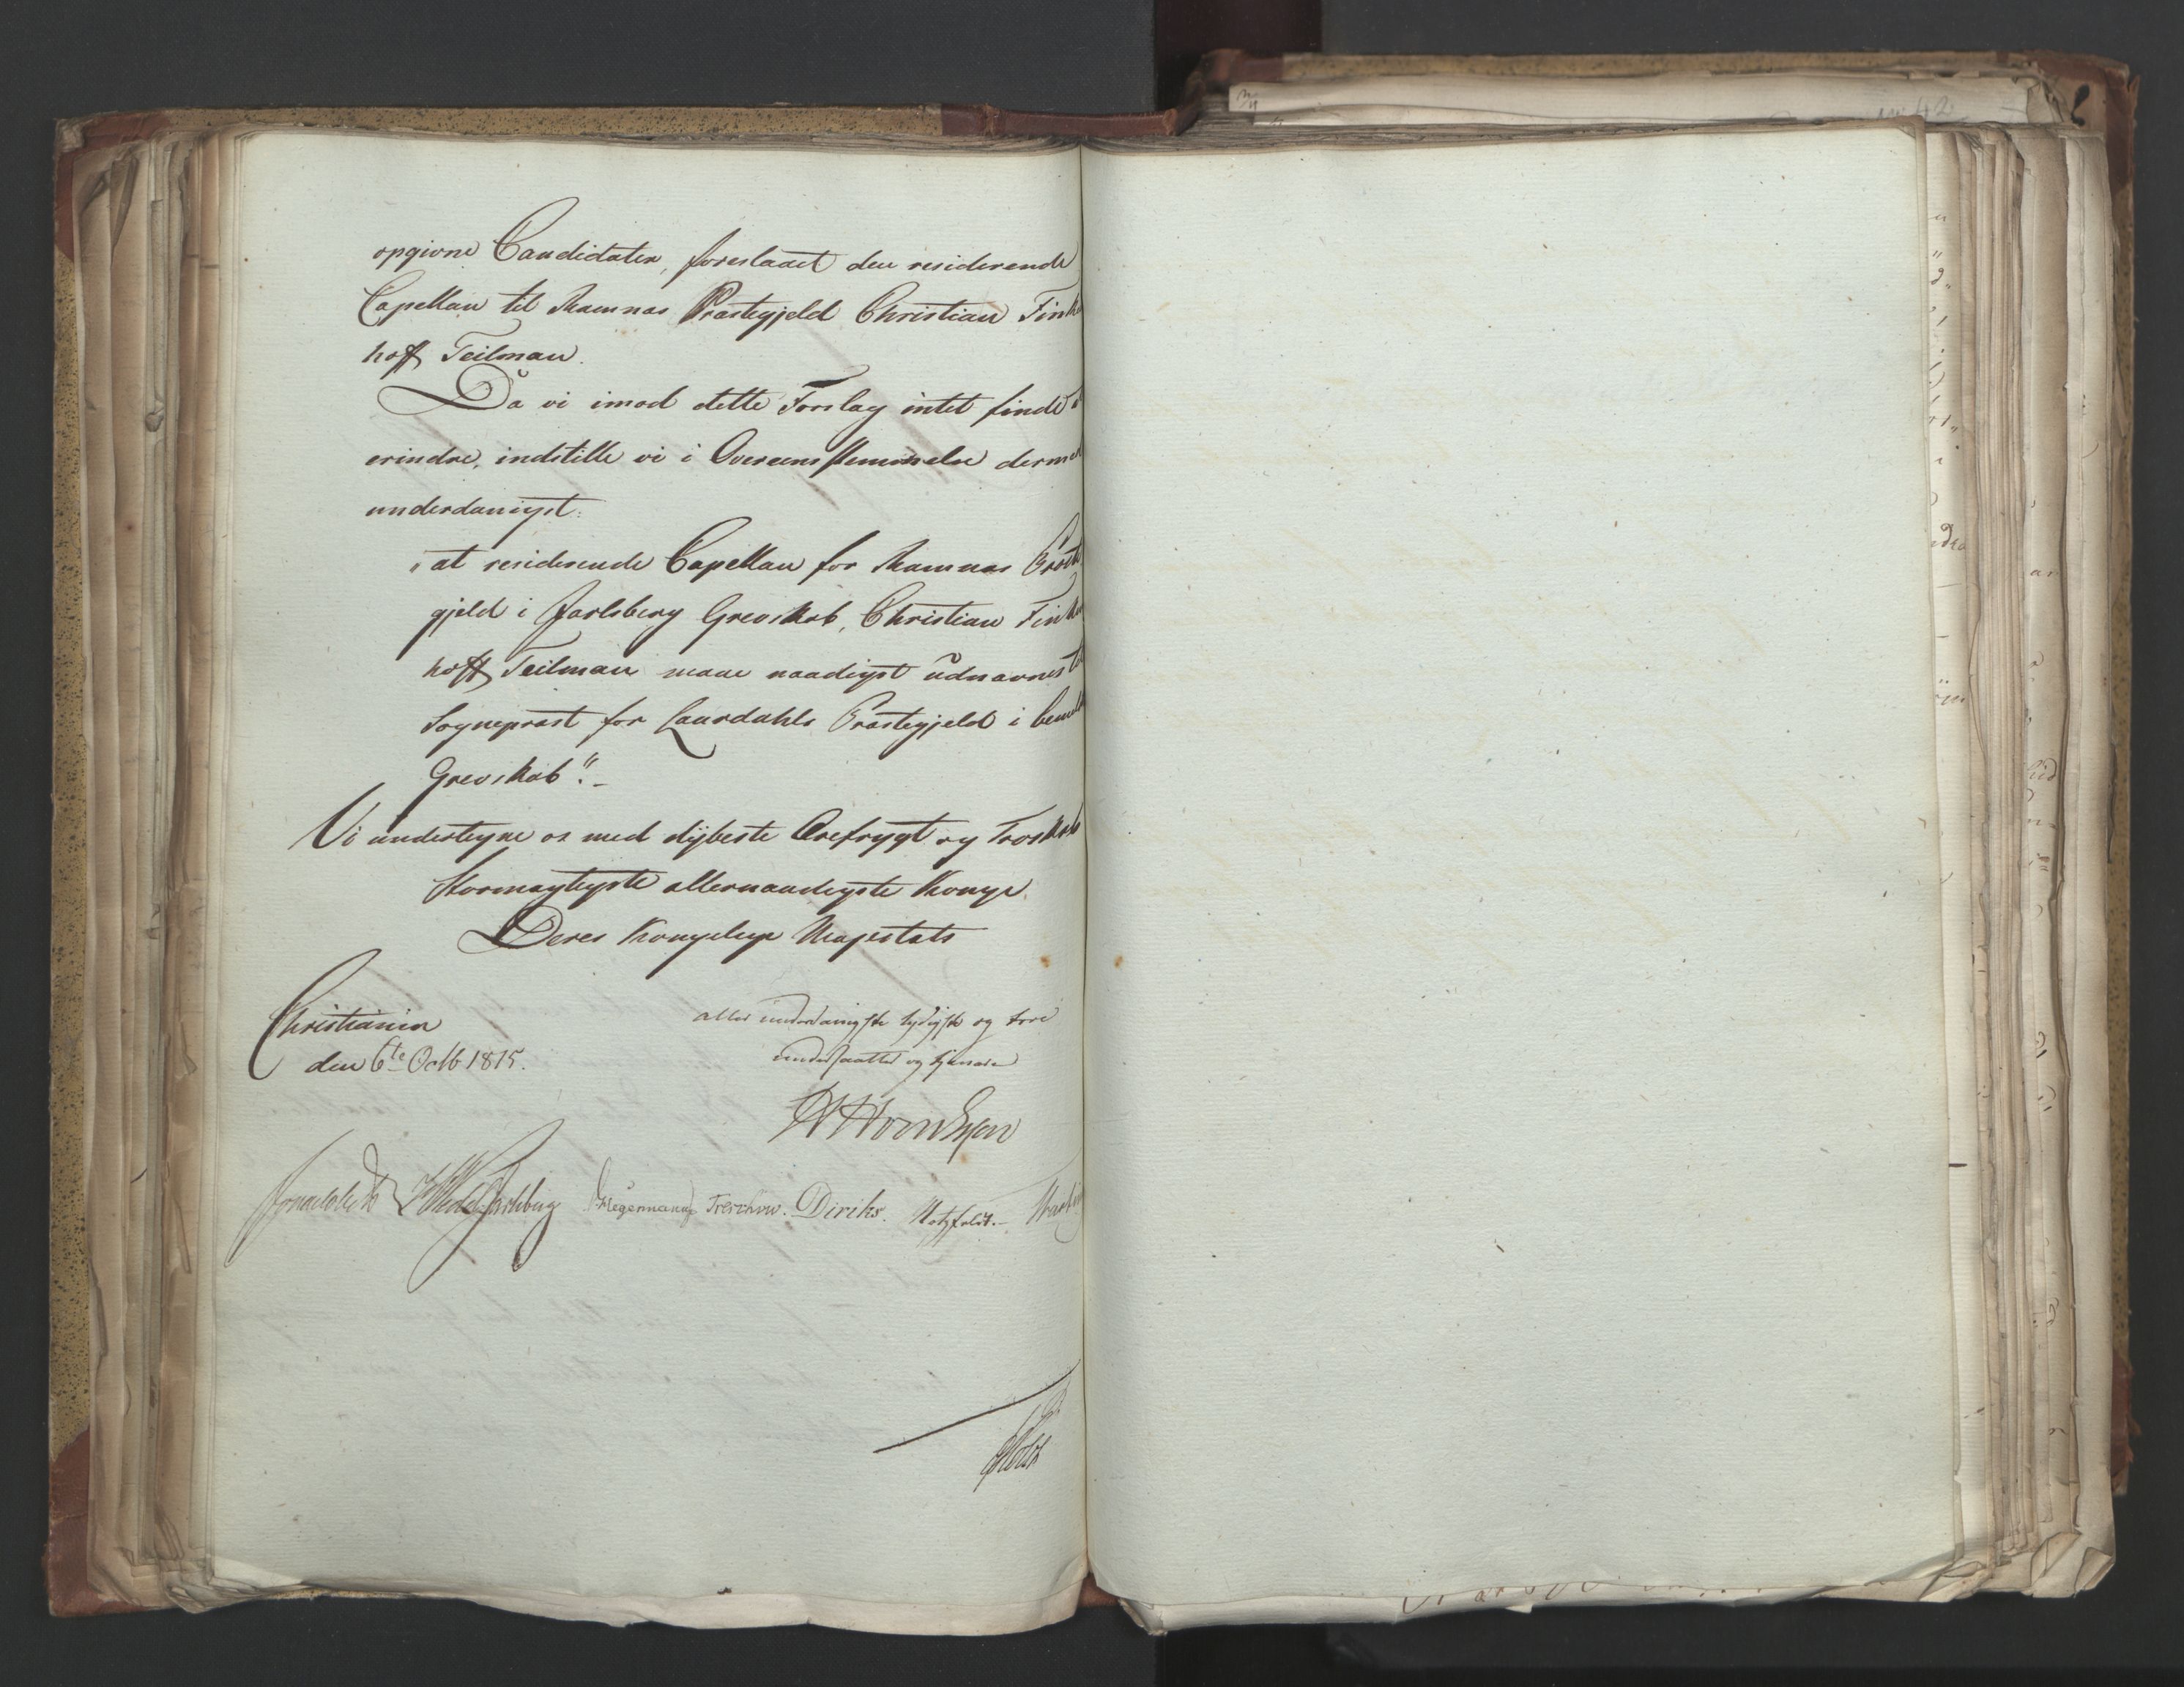 opgivne Candidater, foreslaaet den residerende
Capellan til Ramnæs Præstegjeld Christian Finken
hoff Teilman.
Da vi imod dette Forslag intet finde at
erindre, indstille vi i Overeensstemmelse dermed
underdanigst:
"at residerende Capellan for Ramnæs Præste
gjeld i Jarlsberg Grevskab, Christian Finken
hoff Teilman maae naadigst udnævnes til
Sognepræst for Laurdahls Præstegjeld i bemeldte
Grevskab".-
Vi undertegne os med dÿbeste Ærefrygt og Troskab
Stormægtigste allernaadigste Konge
Deres Kongelige Majestæts
Christiania
den 6te Octb 1815.
aller underdanigste lydigste og troe
undersaatter og tjenere
Sommerhielm?